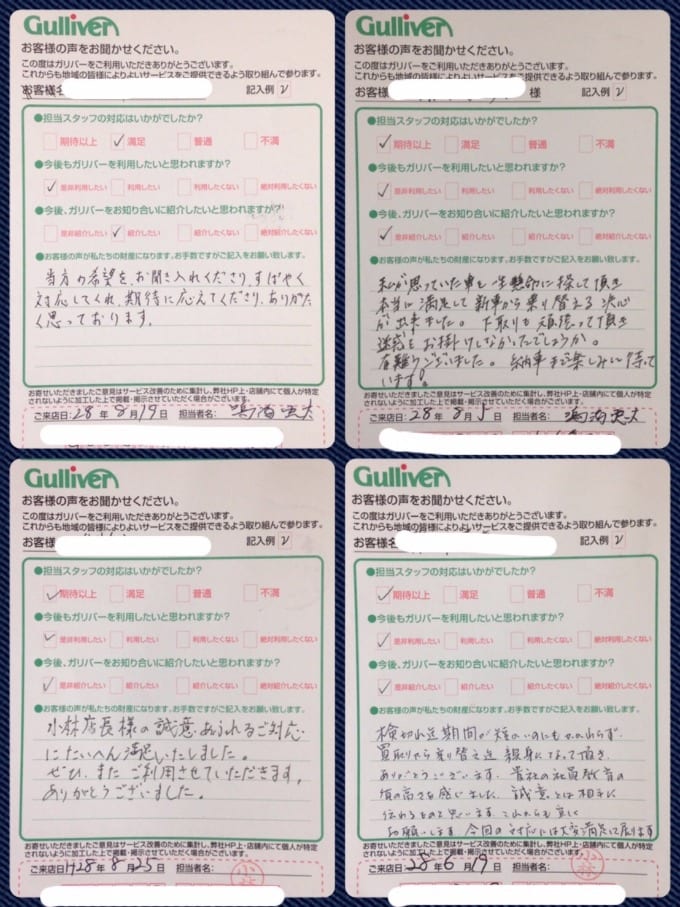 Gulliver
お客様の声をお聞かせください。
この度はガリバーをご利用いただきありがとうございます。
これからも地域の皆様によりよいサービスをご提供できるよう取り組んで参ります。
お客様名
記入例 レ
●担当スタッフの対応はいかがでしたか?
期待以上 レ満足 普通 不満
●今後もガリバーを利用したいと思われますか?
レ是非利用したい 利用したい 利用したくない 絶対利用したくない
●今後、ガリバーをお知り合いに紹介したいと思われますか?
是非紹介したい レ紹介したい 紹介したくない 絶対紹介したくない
●お客様の声が私たちの財産になります。お手数ですがご記入をお願い致します。
当方の希望を、お聞き入れくださり、すばやく
対応してくれ、期待に応えてくださり、ありがた
く思っております。
お寄せいただきましたご意見はサービス改善のために集計し、弊社HP上・店舗内にて個人が特定
されないように加工した上で掲載・掲示させていただく場合がございます。
ご来店日 28年 8月 19日 担当者名:
Gulliver
お客様の声をお聞かせください。
この度はガリバーをご利用いただきありがとうございます。
これからも地域の皆様によりよいサービスをご提供できるよう取り組んで参ります。
お客様名 様 記入例 レ
●担当スタッフの対応はいかがでしたか?
レ期待以上 満足 普通 不満
●今後もガリバーを利用したいと思われますか?
レ是非利用したい 利用したい 利用したくない 絶対利用したくない
●今後、ガリバーをお知り合いに紹介したいと思われますか?
レ是非紹介したい 紹介したい 紹介したくない 絶対紹介したくない
●お客様の声が私たちの財産になります。お手数ですがご記入をお願い致します。
私が思っていた車を一生懸命に探して頂き
本当に満足して新車から乗り替える決心
が出来ました。下取りも頑張って頂き
迷惑をお掛けしなかったでしょうか。
有難うございました。納車まで楽しみに待って
います。
お寄せいただきましたご意見はサービス改善のために集計し、弊社HP上・店舗内にて個人が特定
されないように加工した上で掲載・掲示させていただく場合がございます。
ご来店日: 28年 8月 5日 担当者名:
Gulliver
お客様の声をお聞かせください。
この度はガリバーをご利用いただきありがとうございます。
これからも地域の皆様によりよいサービスをご提供できるよう取り組んで参ります。
お客様 記入例 レ
●担当スタッフの対応はいかがでしたか?
レ期待以上 満足 普通 不満
●今後もガリバーを利用したいと思われますか?
レ是非利用したい 利用したい 利用したくない 絶対利用したくない
●今後、ガリバーをお知り合いに紹介したいと思われますか?
レ是非紹介したい 紹介したい 紹介したくない 絶対紹介したくない
●お客様の声が私たちの財産になります。お手数ですがご記入をお願い致します。
小林店長様の誠意あふれるご対応
にたいへん満足いたしました。
ぜひ、またご利用させていただきます。
ありがとうございました。
お寄せいただきましたご意見はサービス改善のために集計し、弊社HP上・店舗内にて個人が特定
されないように加工した上で掲載・掲示させていただく場合がございます。
ご来店日 H28年 8月 25日 担当者名: 小林
Gulliver
お客様の声をお聞かせください。
この度はガリバーをご利用いただきありがとうございます。
これからも地域の皆様によりよいサービスをご提供できるよう取り組んで参ります。
お客様名 記入例 レ
●担当スタッフの対応はいかがでしたか?
レ期待以上 満足 普通 不満
●今後もガリバーを利用したいと思われますか?
レ是非利用したい 利用したい 利用したくない 絶対利用したくない
●今後、ガリバーをお知り合いに紹介したいと思われますか?
レ是非紹介したい 紹介したい 紹介したくない 絶対紹介したくない
●お客様の声が私たちの財産になります。お手数ですがご記入をお願い致します。
検切れ迄期間が短いのにもかかわらず
買取りから乗り替え迄親身になって頂き
ありがとうございます。貴社の社員教育の
質の高さを感じました。誠意とは相手に
伝わるものと思います。これからも宜しく
お願いします。今回の対応には大変満足して居ります
お寄せいただきましたご意見はサービス改善のために集計し、弊社HP上・店舗内にて個人が特定
されないように加工した上で掲載・掲示させていただく場合がございます。
ご来店日: 28年 6月 19日 担当者名: 小林